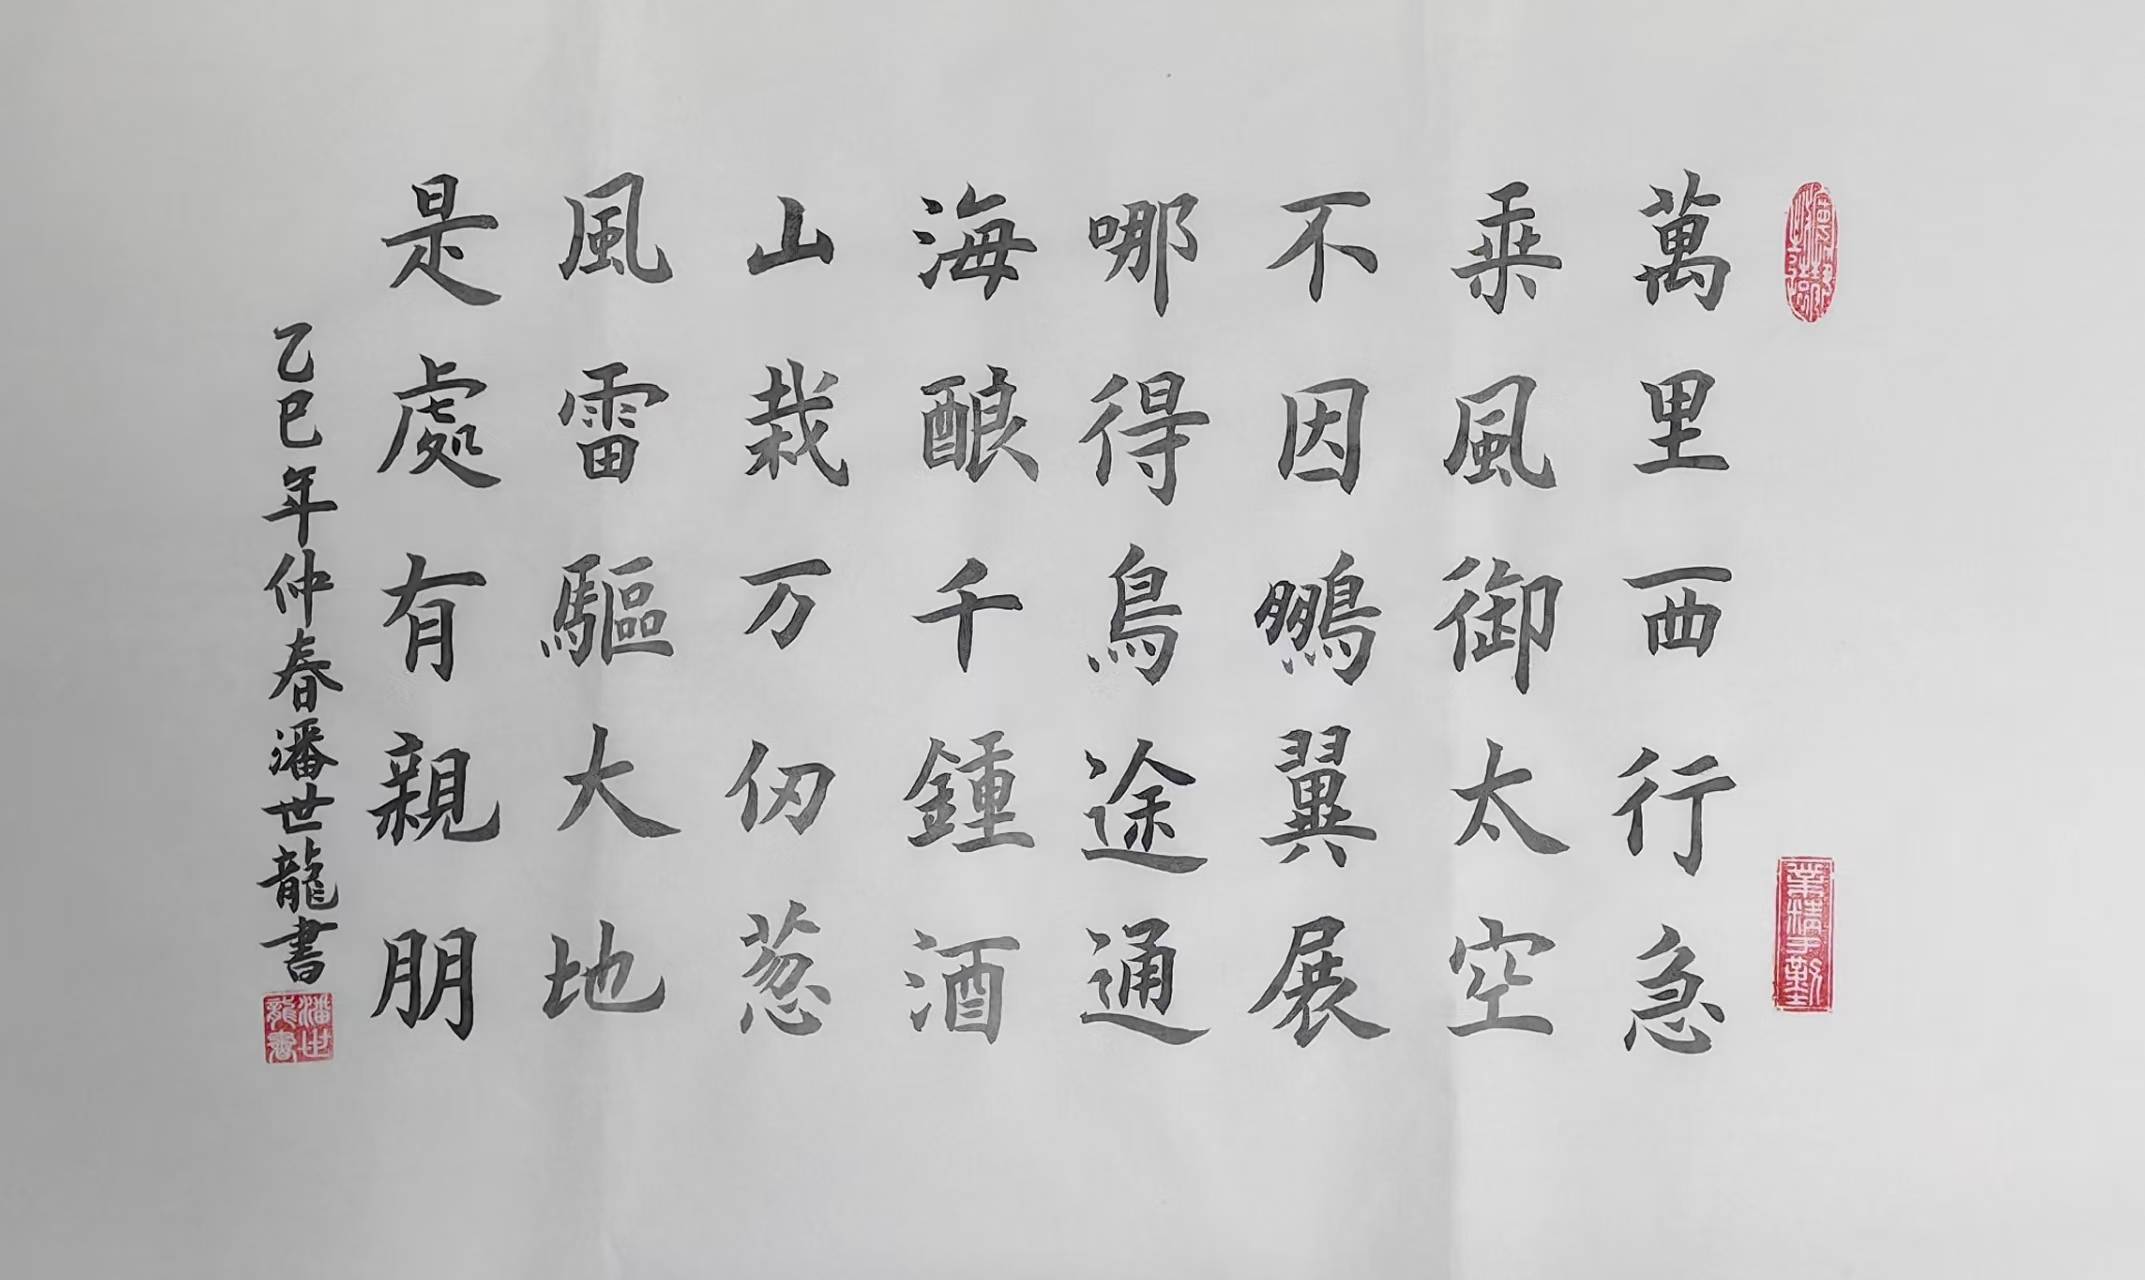 萬里西行急
乘風御太空
不因鵬翼展
哪得鳥途通
海酿千鍾酒
山栽万仞葱
風雷驅大地
是處有親朋
乙巳年仲春潘世龍書
業精于勤
潘世龍書